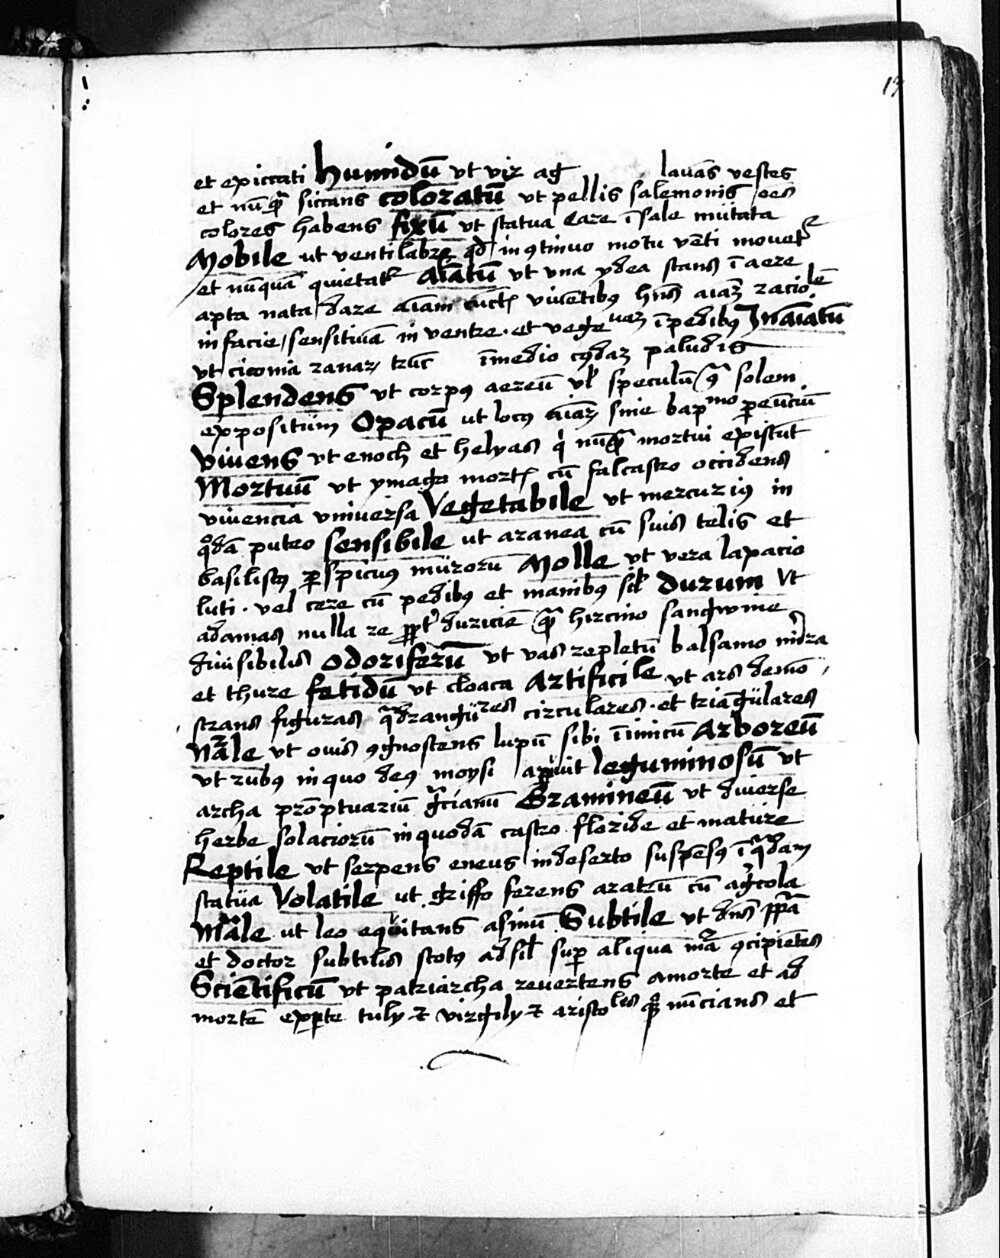 19
et epiccati humidū vt vir aq̄ lauās vestes
et nūq̄ siccans coloratū vt pellis salemonis oēs
colores habens fixū vt statua Care ī sale mutata
Mobile ut ventilabrū qd̄ in ꝯtinuo motu vēti mouet
et nunquā quietat Aīatū vt vna ydea stans ī aere
apta nata dare aīam cūctꝭ viuētibus hn̄s aīaꝫ racīolē
in facie sensitiuā in ventre et vege uaꝫ ī pedibꝰ Inaīatū
vt ciconia ranaꝝ in medio paludis
Splendens vt corpꝰ aereū vl̄ speculū solem
expositum Opacū ut locꝰ aīaꝝ sine bap mo ꝑeūciū
viuens vt enoch et helyas q̇ nūq̄ mortui
Mortuū vt ymago mortꝭ cū falcastro occidens
viuencia vniuersa Vegetabile vt mercurius in
qͦdā puteo sensibile ut aranea cū suis telis et
basiliscꝰ ꝑspicuus murorū Molle vt vera lapacio
luti vel cere cū pedibꝰ et manibꝰ sil̄ durum Vt
adamas nulla re duriciē hircino sangwine
diuisibilis odoriferū vt vas repletū balsamo mirra
et thure fetidū vt cloaca Artificile vt ars demō
strans figuras q̄drangu res circulares et triangulares
Nr̄ale vt ouis ꝯgnoscens lupū sibi īimicū Arboreū
vt rubꝰ in quo deꝰ moysi apparuit leguminosū vt
archa prōptuariū Gramineū vt diuerse
herbe solaciorū in quodā castro floride et mature
Reptile vt serpens eneus in deserto suspēsꝰ ī q̄dam
statua Volatile ut griffo ferens aratrū cū agͥcola
ut leo equitans asinū Subtile vt
et doctor subtilis scotꝰ sup aliqua mr̄a ꝯcipiētes
Sciētificū vt patriarcha reuertens amorte et ad
mortē tuly ⁊ virgily ⁊ aristo les nūcians et